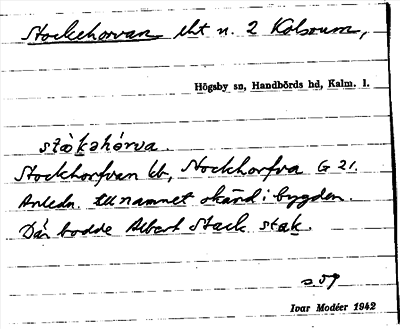 Stockhorvan lht n. 2 Kolsrum,
Högsby sn, Handbörds hd, Kalm. l.
Stockhorfvan kb, Stockhorfva G 21.
Anledn. till namnet okänd i bygden.
Där bodde Albert Stack. stak.
s 59
Ivar Modéer 1942